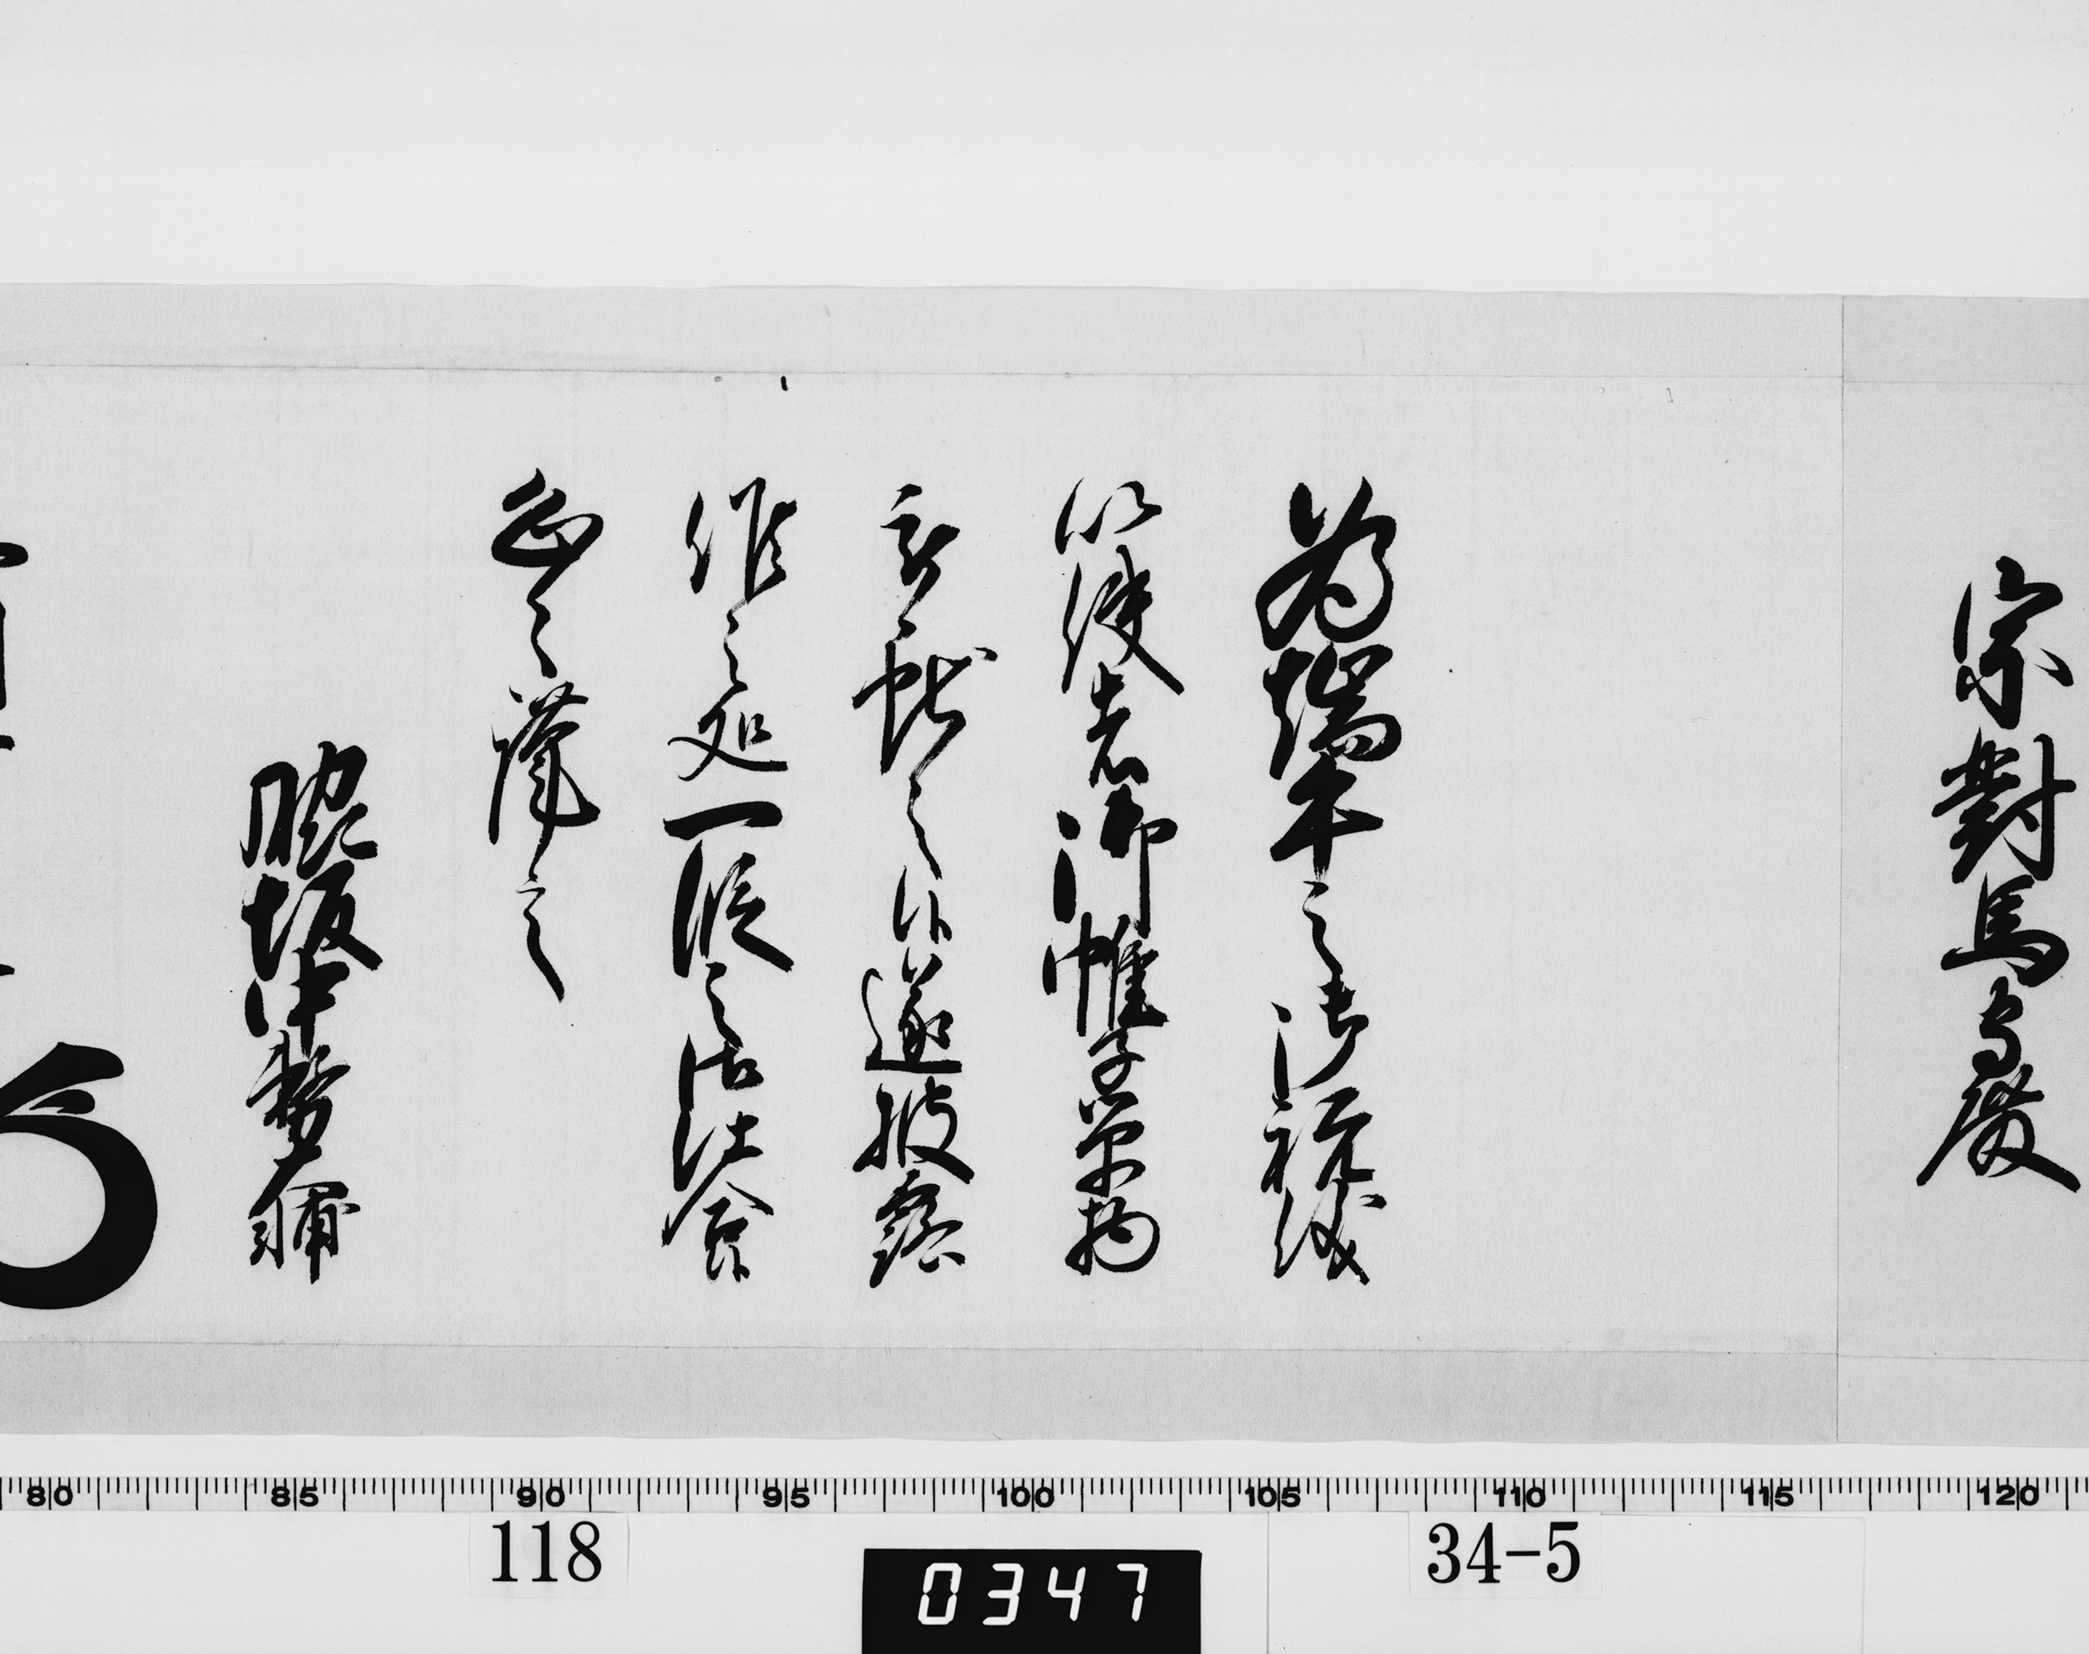 宗對馬守殿
為端午之御祝儀
以使者御帷子単物
被献之候遂披露
候之処一段之御仕合候
恐々謹言
脇坂中務大輔
80 85 90 95 100 105 110 115 120
118
0347
34-5